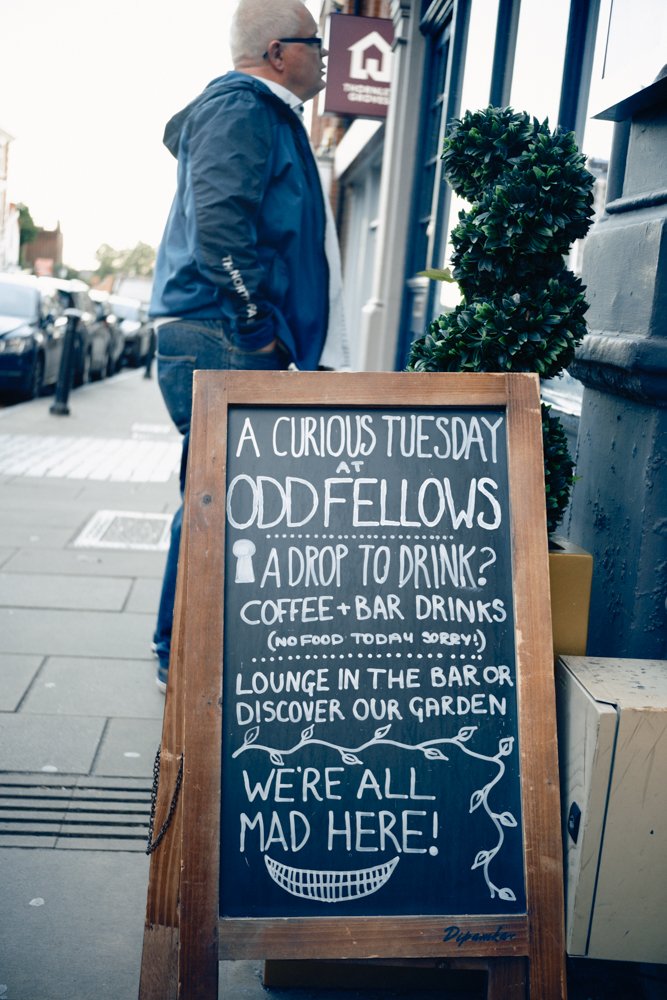 THE NORTH FA
A CURIOUS TUESDAY
AT
ODDFELLOWS
A DROP TO DRINK?
COFFEE + BAR DRINKS
(NO FOOD TODAY SORRY!)
LOUNGE IN THE BAR OR
DISCOVER OUR GARDEN
WE'RE ALL
MAD HERE!
Dipamkar